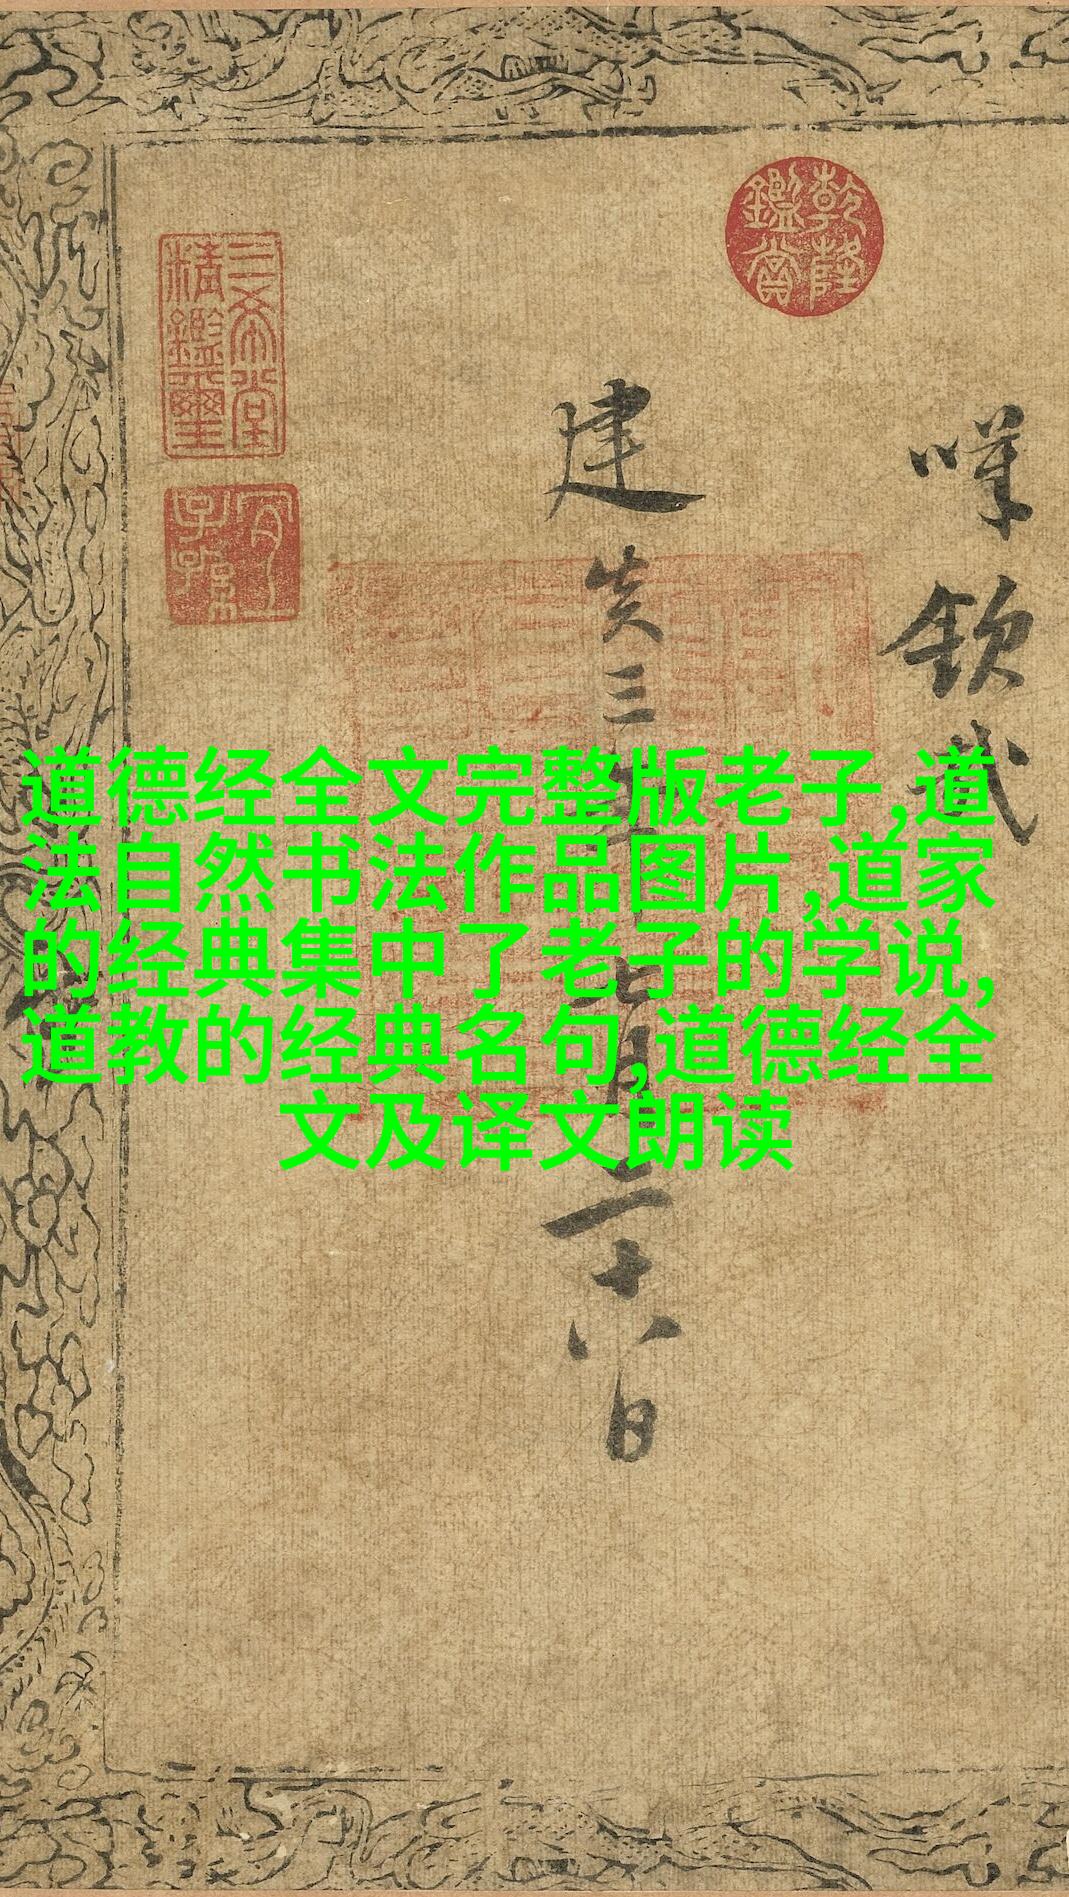 道德经全文完整版老子,道
法自然书法作品图片,道家
的经典集中了老子的学说,
道教的经典名句,道德经全
文及译文朗读
乾隆
鑑賞
三希堂
精鑑璽
宜
子孫
嘆欽哉
建炎三年七月二十八日